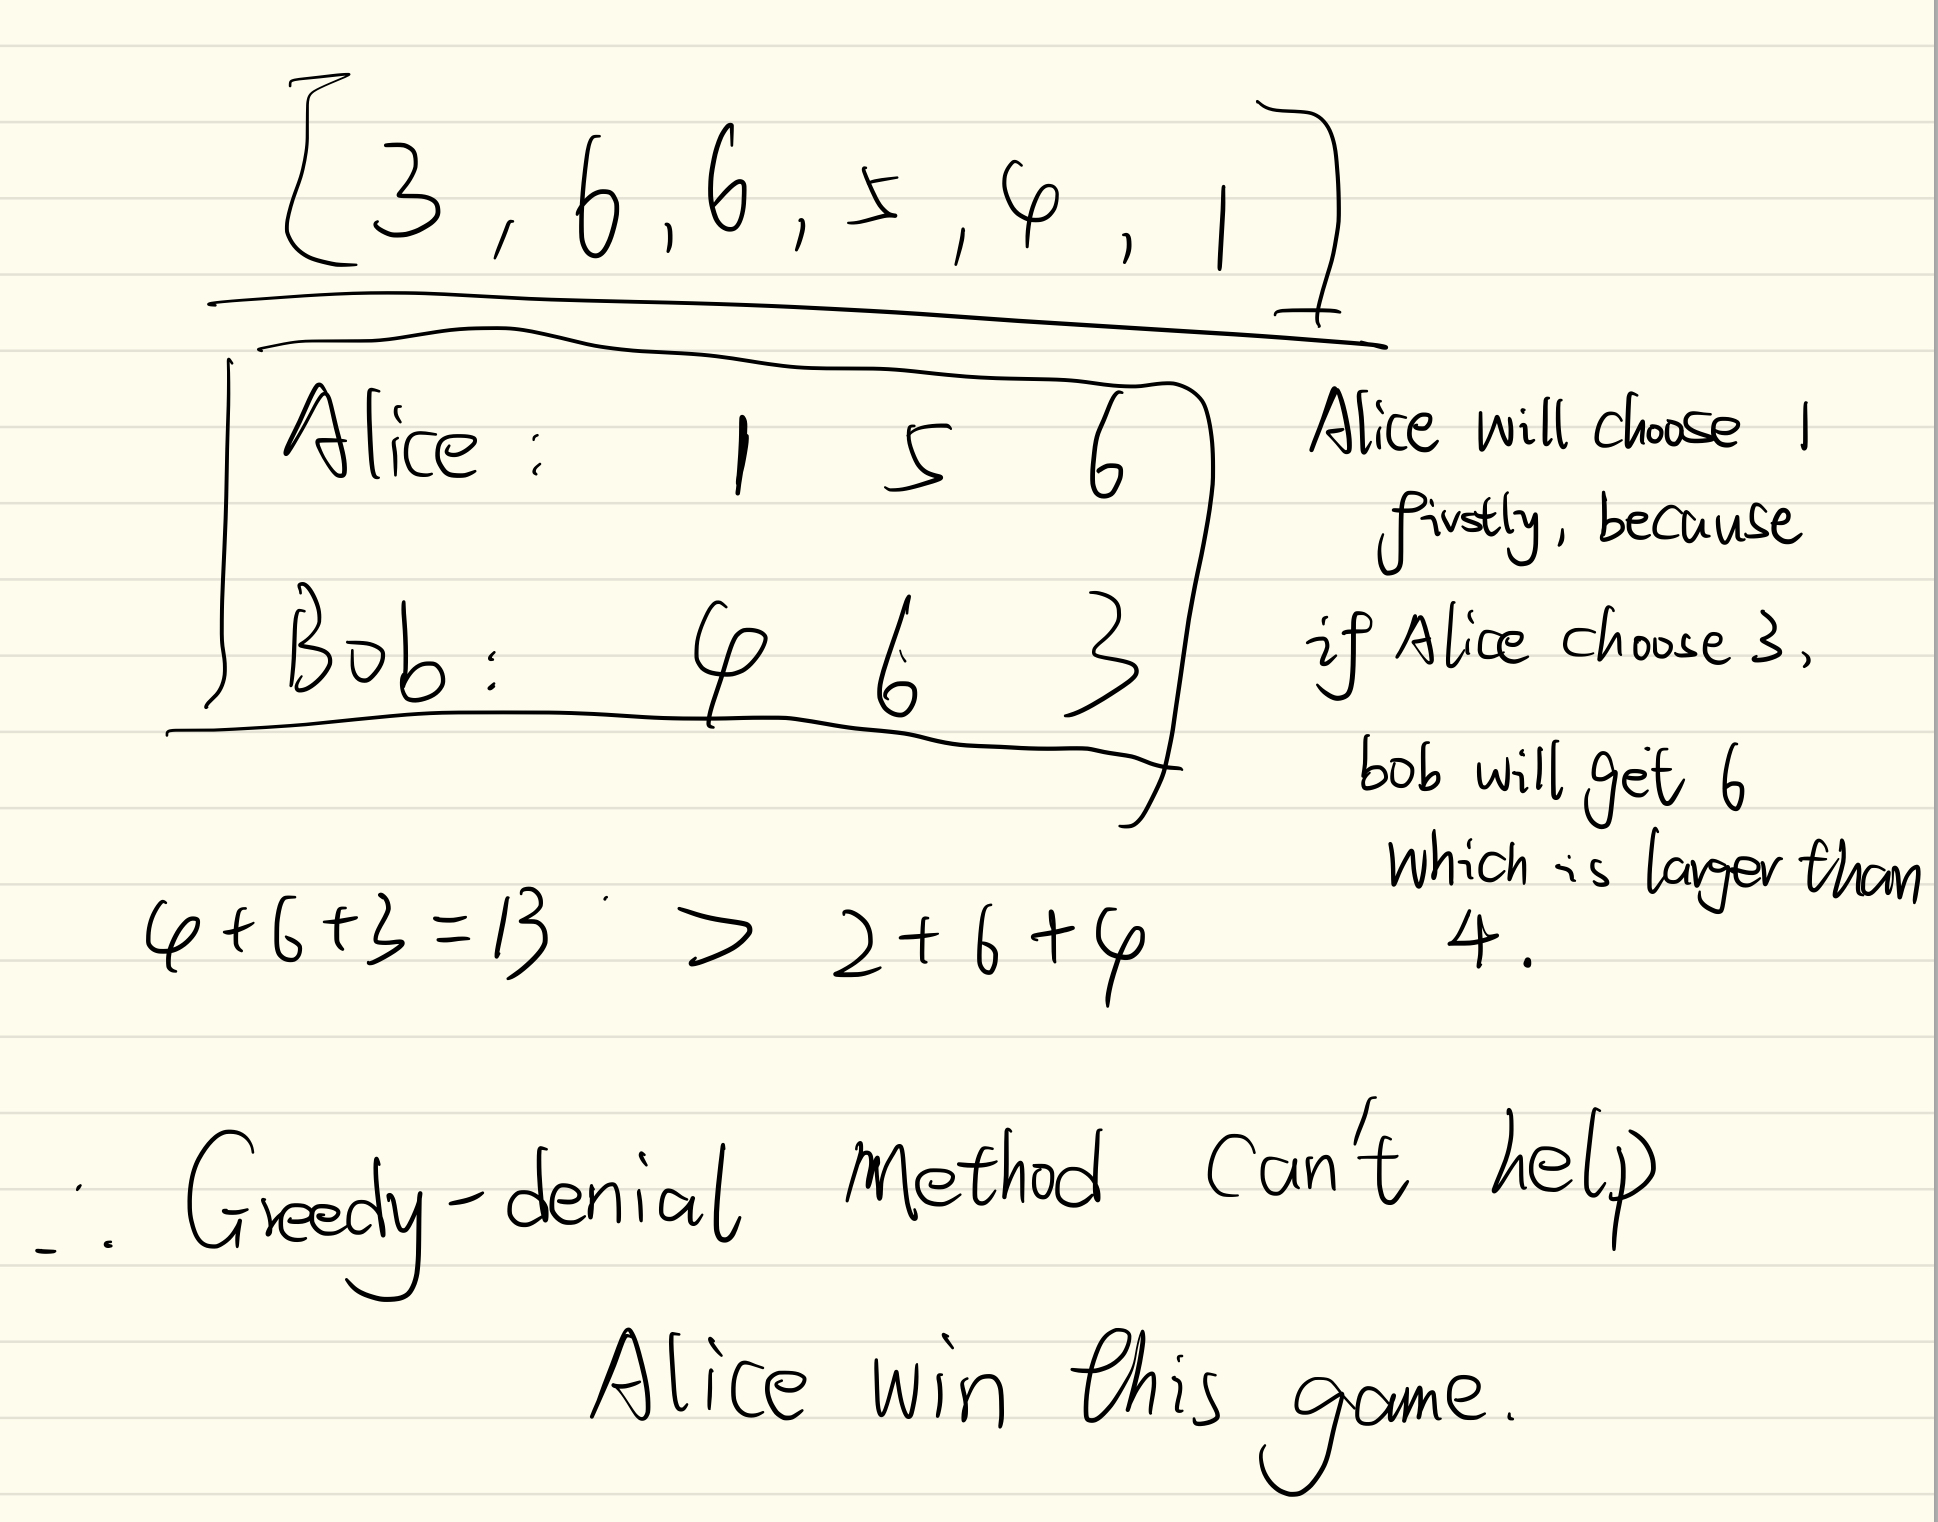 [3, 6, 6, 5, 4, 1]
Alice: 1 5 6
Bob: 4 6 3
Alice will choose 1
firstly, because
if Alice choose 3,
bob will get 6
which is larger than
4.
4+6+3=13 > 2+6+4
∴ Greedy-denial Method can't help
Alice win this game.